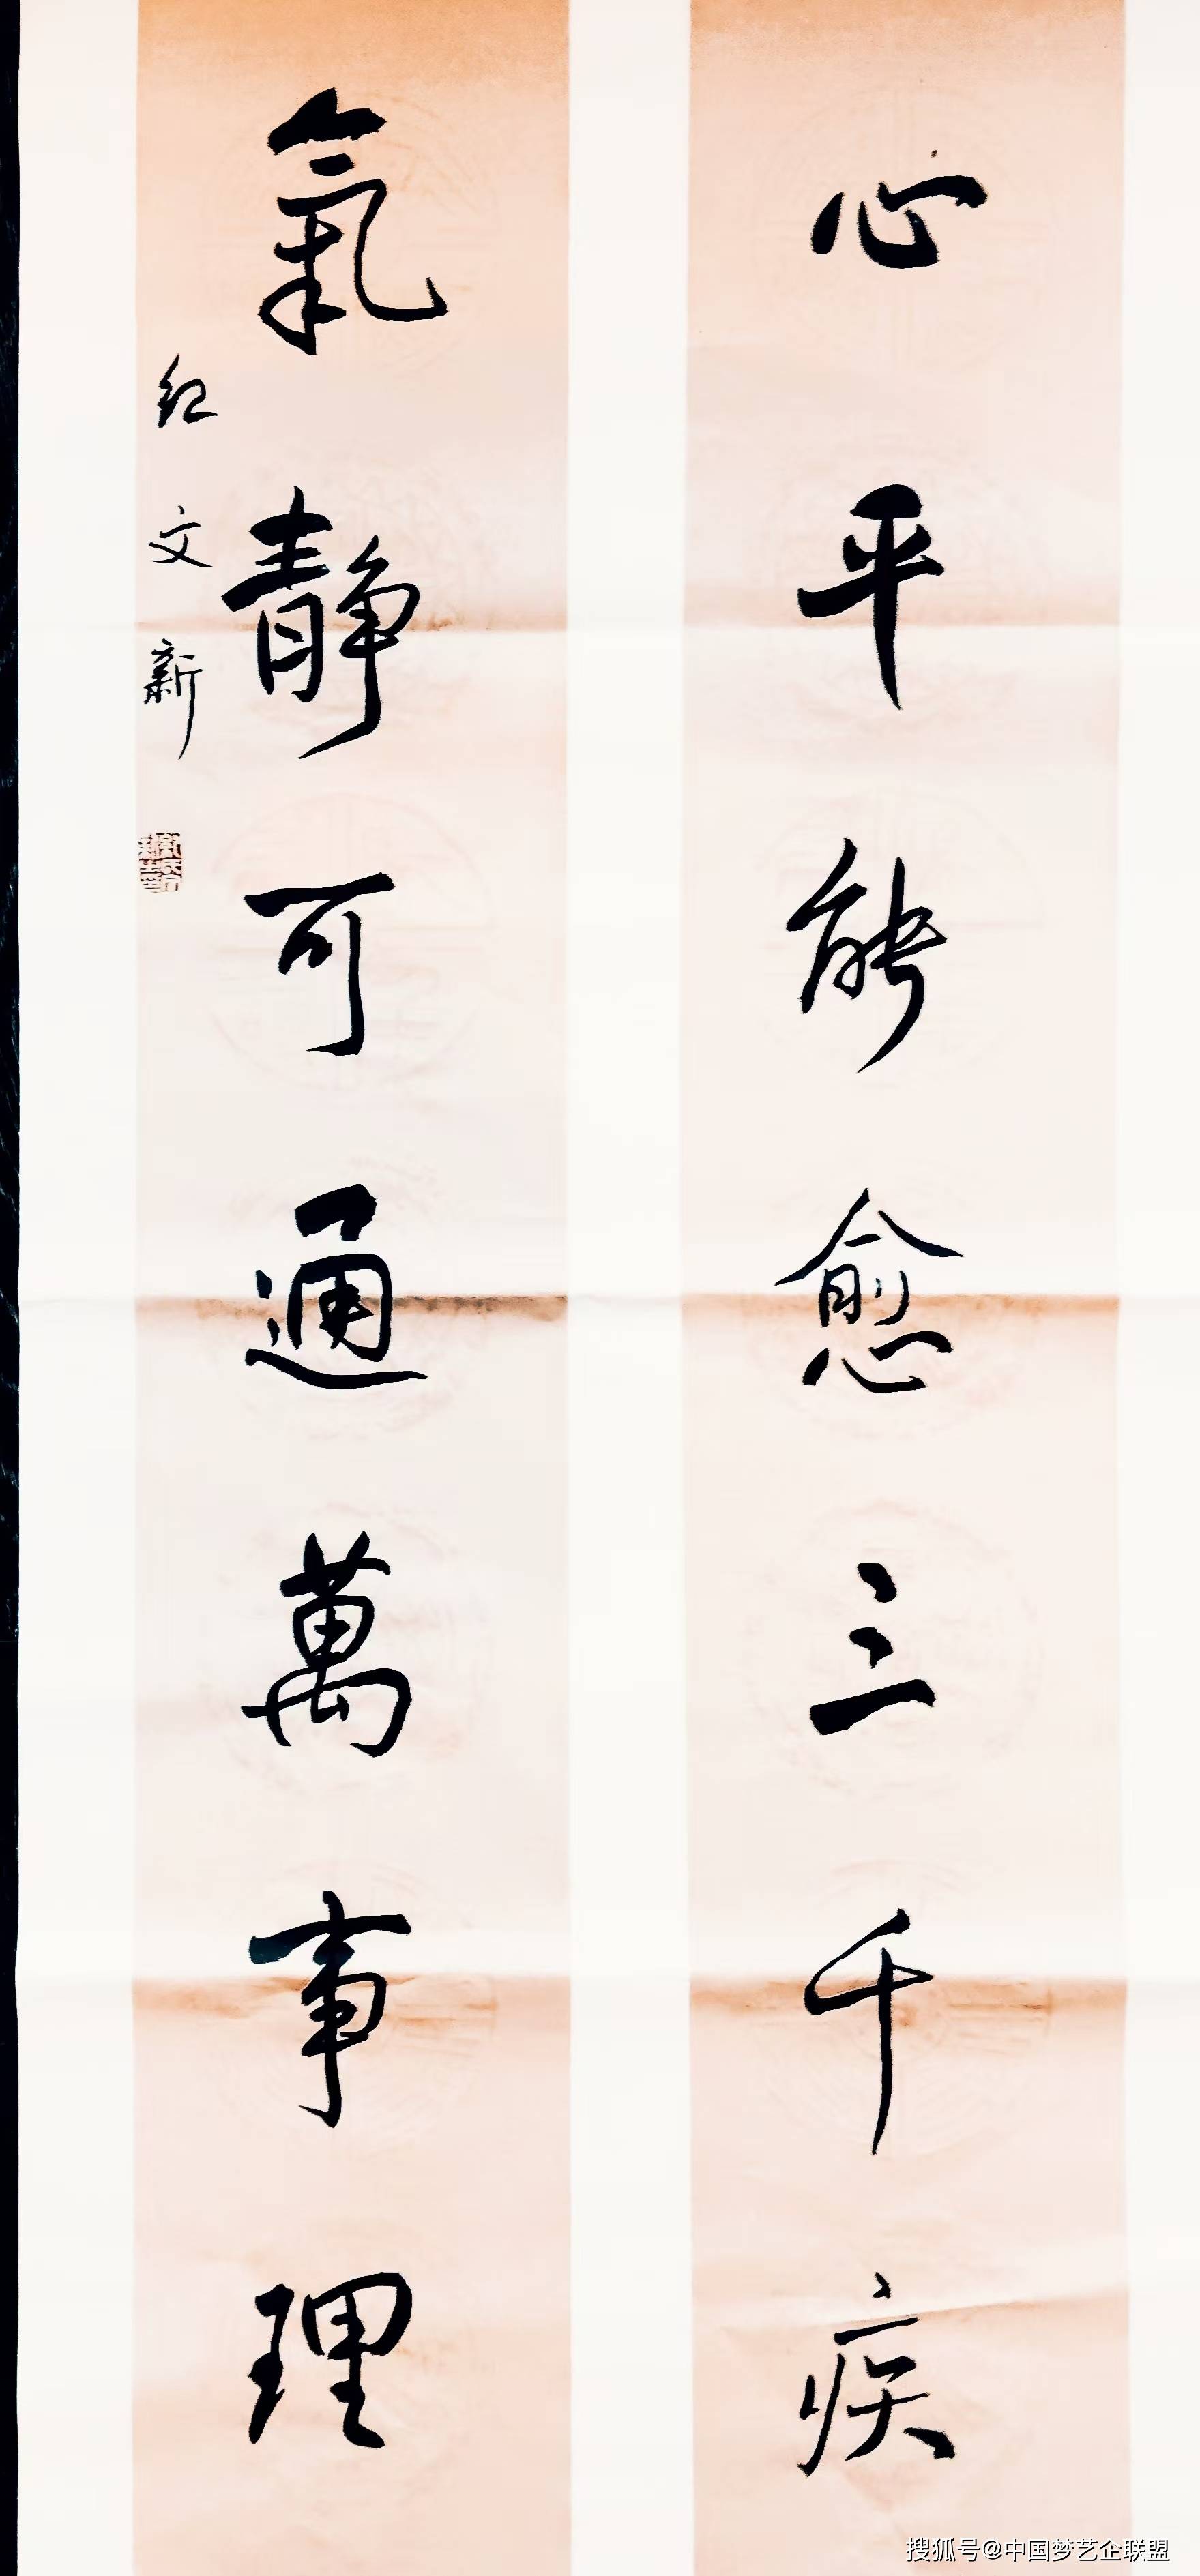 心平能愈三千疾
氣靜可通萬事理
紅文新
搜狐号@中国梦艺企联盟